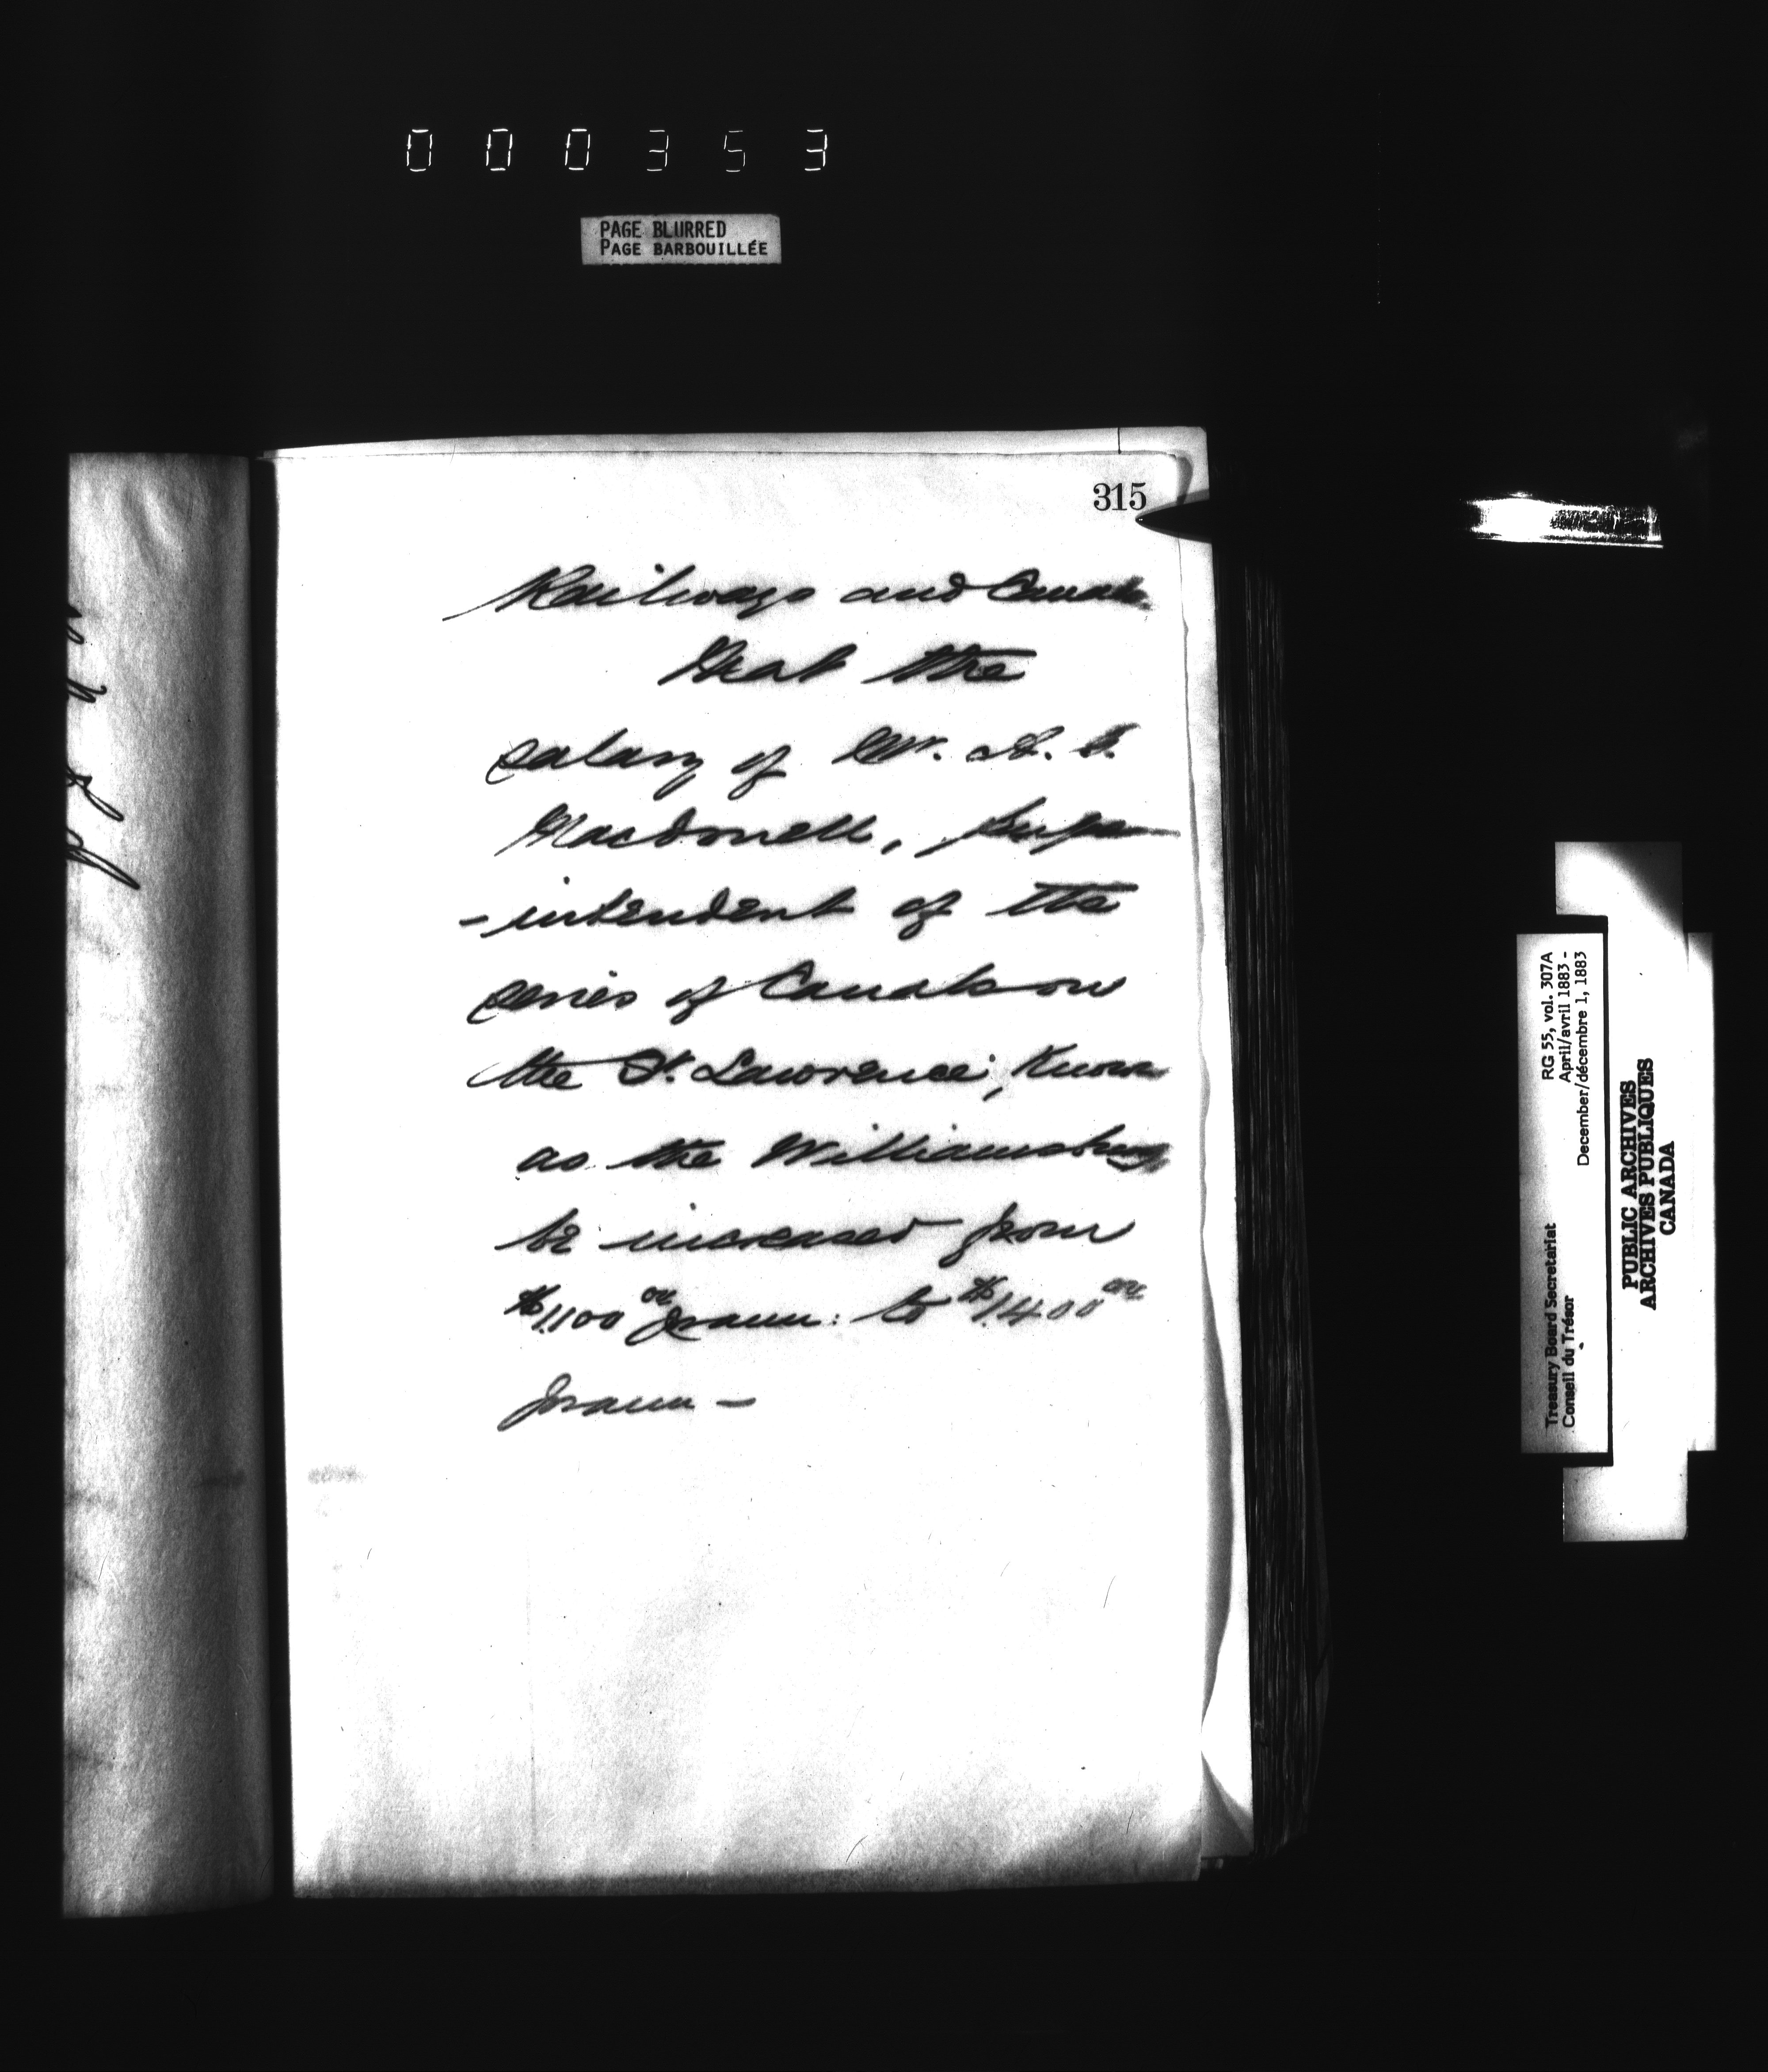 000353
PAGE BLURRED
PAGE BARBOUILLÉE
315
Railways and Canals
That the
salary of Mr. A. G.
Macdonell, Super
-intendent of the
series of Canals on
the St. Lawrence, Known
as the Williamsburg
be increased from
$1,100 00 pr ann: to $1,400 00
pr ann -
RG 55, vol. 307A
April/avril 1883 -
December/décembre 1, 1883
Treasury Board Secretariat
Conseil du Trésor
PUBLIC ARCHIVES
ARCHIVES PUBLIQUES
CANADA